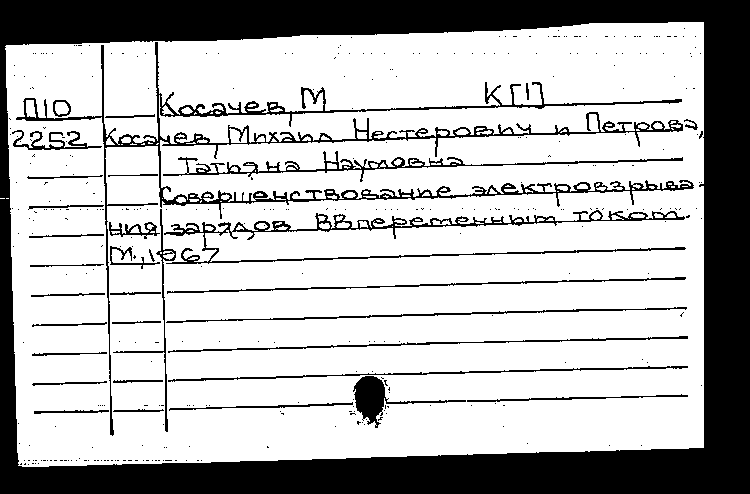 П10 Косачев, М К[1]
2252 Косачев, Михаил Нестерович и Петрова,
Татьяна Наумовна
Совершенствование электровзрыва-
ния зарядов ВВ переменным током.
М., 1967